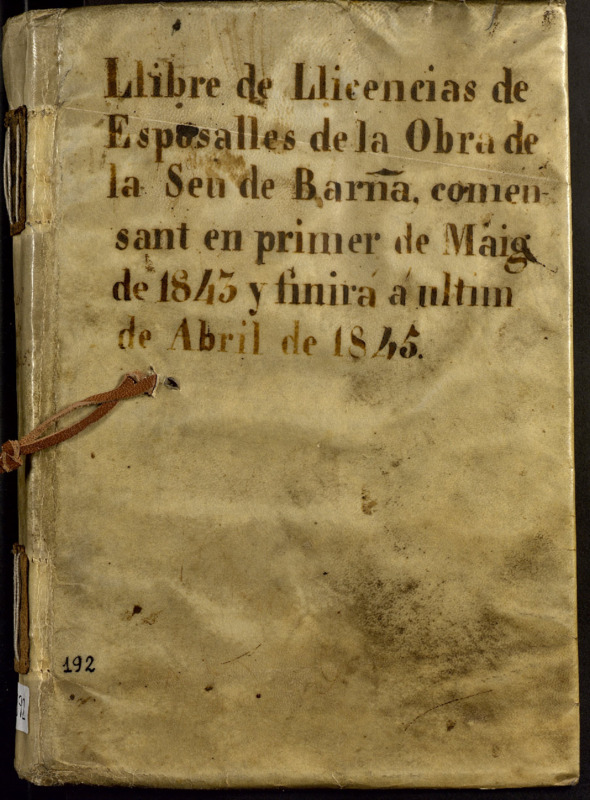 Llibre de Llicencias de
Esposalles de la Obra de
la Seu de Barña, comen-
sant en primer de Maig
de 1843 y finirá á ultim
de Abril de 1845.
192